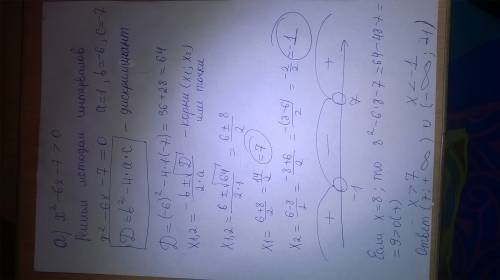 а) x²-6x-7>0
Решим методом интервалов
x²-6x-7=0 a=1, b=-6, c=7
D=b²-4·a·c - дискриминант
D=(-6)²-4·1·(-7)=36+28=64
x₁,₂=(-b±√D)/(2·a) - корни (x₁; x₂) или точки
x₁,₂=(6±√64)/(2·1)=(6±8)/2
x₁=(6+8)/2=14/2=7
x₂=(6-8)/2=(-8+6)/2=-(8-6)/2=-2/2=-1
+ - +
-1 7
Если x=8; то 8²-6·8-7=64-48-7=
=9>0(+)
x>7 x<-1
Ответ: (7; +∞) ∪ (-∞; -1)